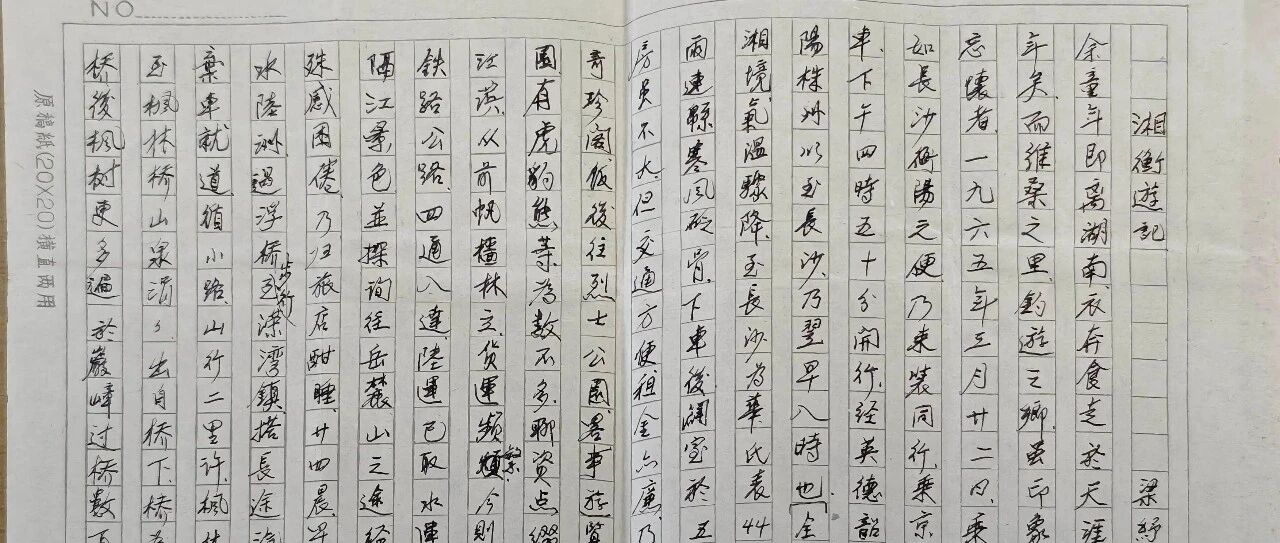 湘衡遊記　梁紓
余童年即离湖南衣奔食走於天涯
年矣而維桑之里釣遊之鄉虽印象
忘懷者一九六五年三月廿二日乘
如長沙衡陽之便乃束裝同行乘京
車下午四時五十分開行经英德韶
陽株州以至長沙乃翌早八時也全
湘境氣溫驟降至長沙为華氏表44
雨連緜寒風砭骨下車後闢室於五
房虽不大但交通方便租金亦廉乃
奇珍阁饭後往烈士公園畧事遊覽
園有虎豹熊等为数不多聊资点缀
江濱从前帆檣林立货運頻繁今則
鉄路公路四通八達陸運已取水運
隔江景色並探询往岳麓山之途经
殊感困倦乃归旅店酣睡廿四晨早
水陸洲過浮桥步行至溁湾鎮搭長途汽
棄車就道循小路山行二里許枫林
至枫林桥山泉涓々出自桥下桥为
桥後枫树更多遍於巖嶂过桥数百
NO
原稿紙(20×20)横直两用